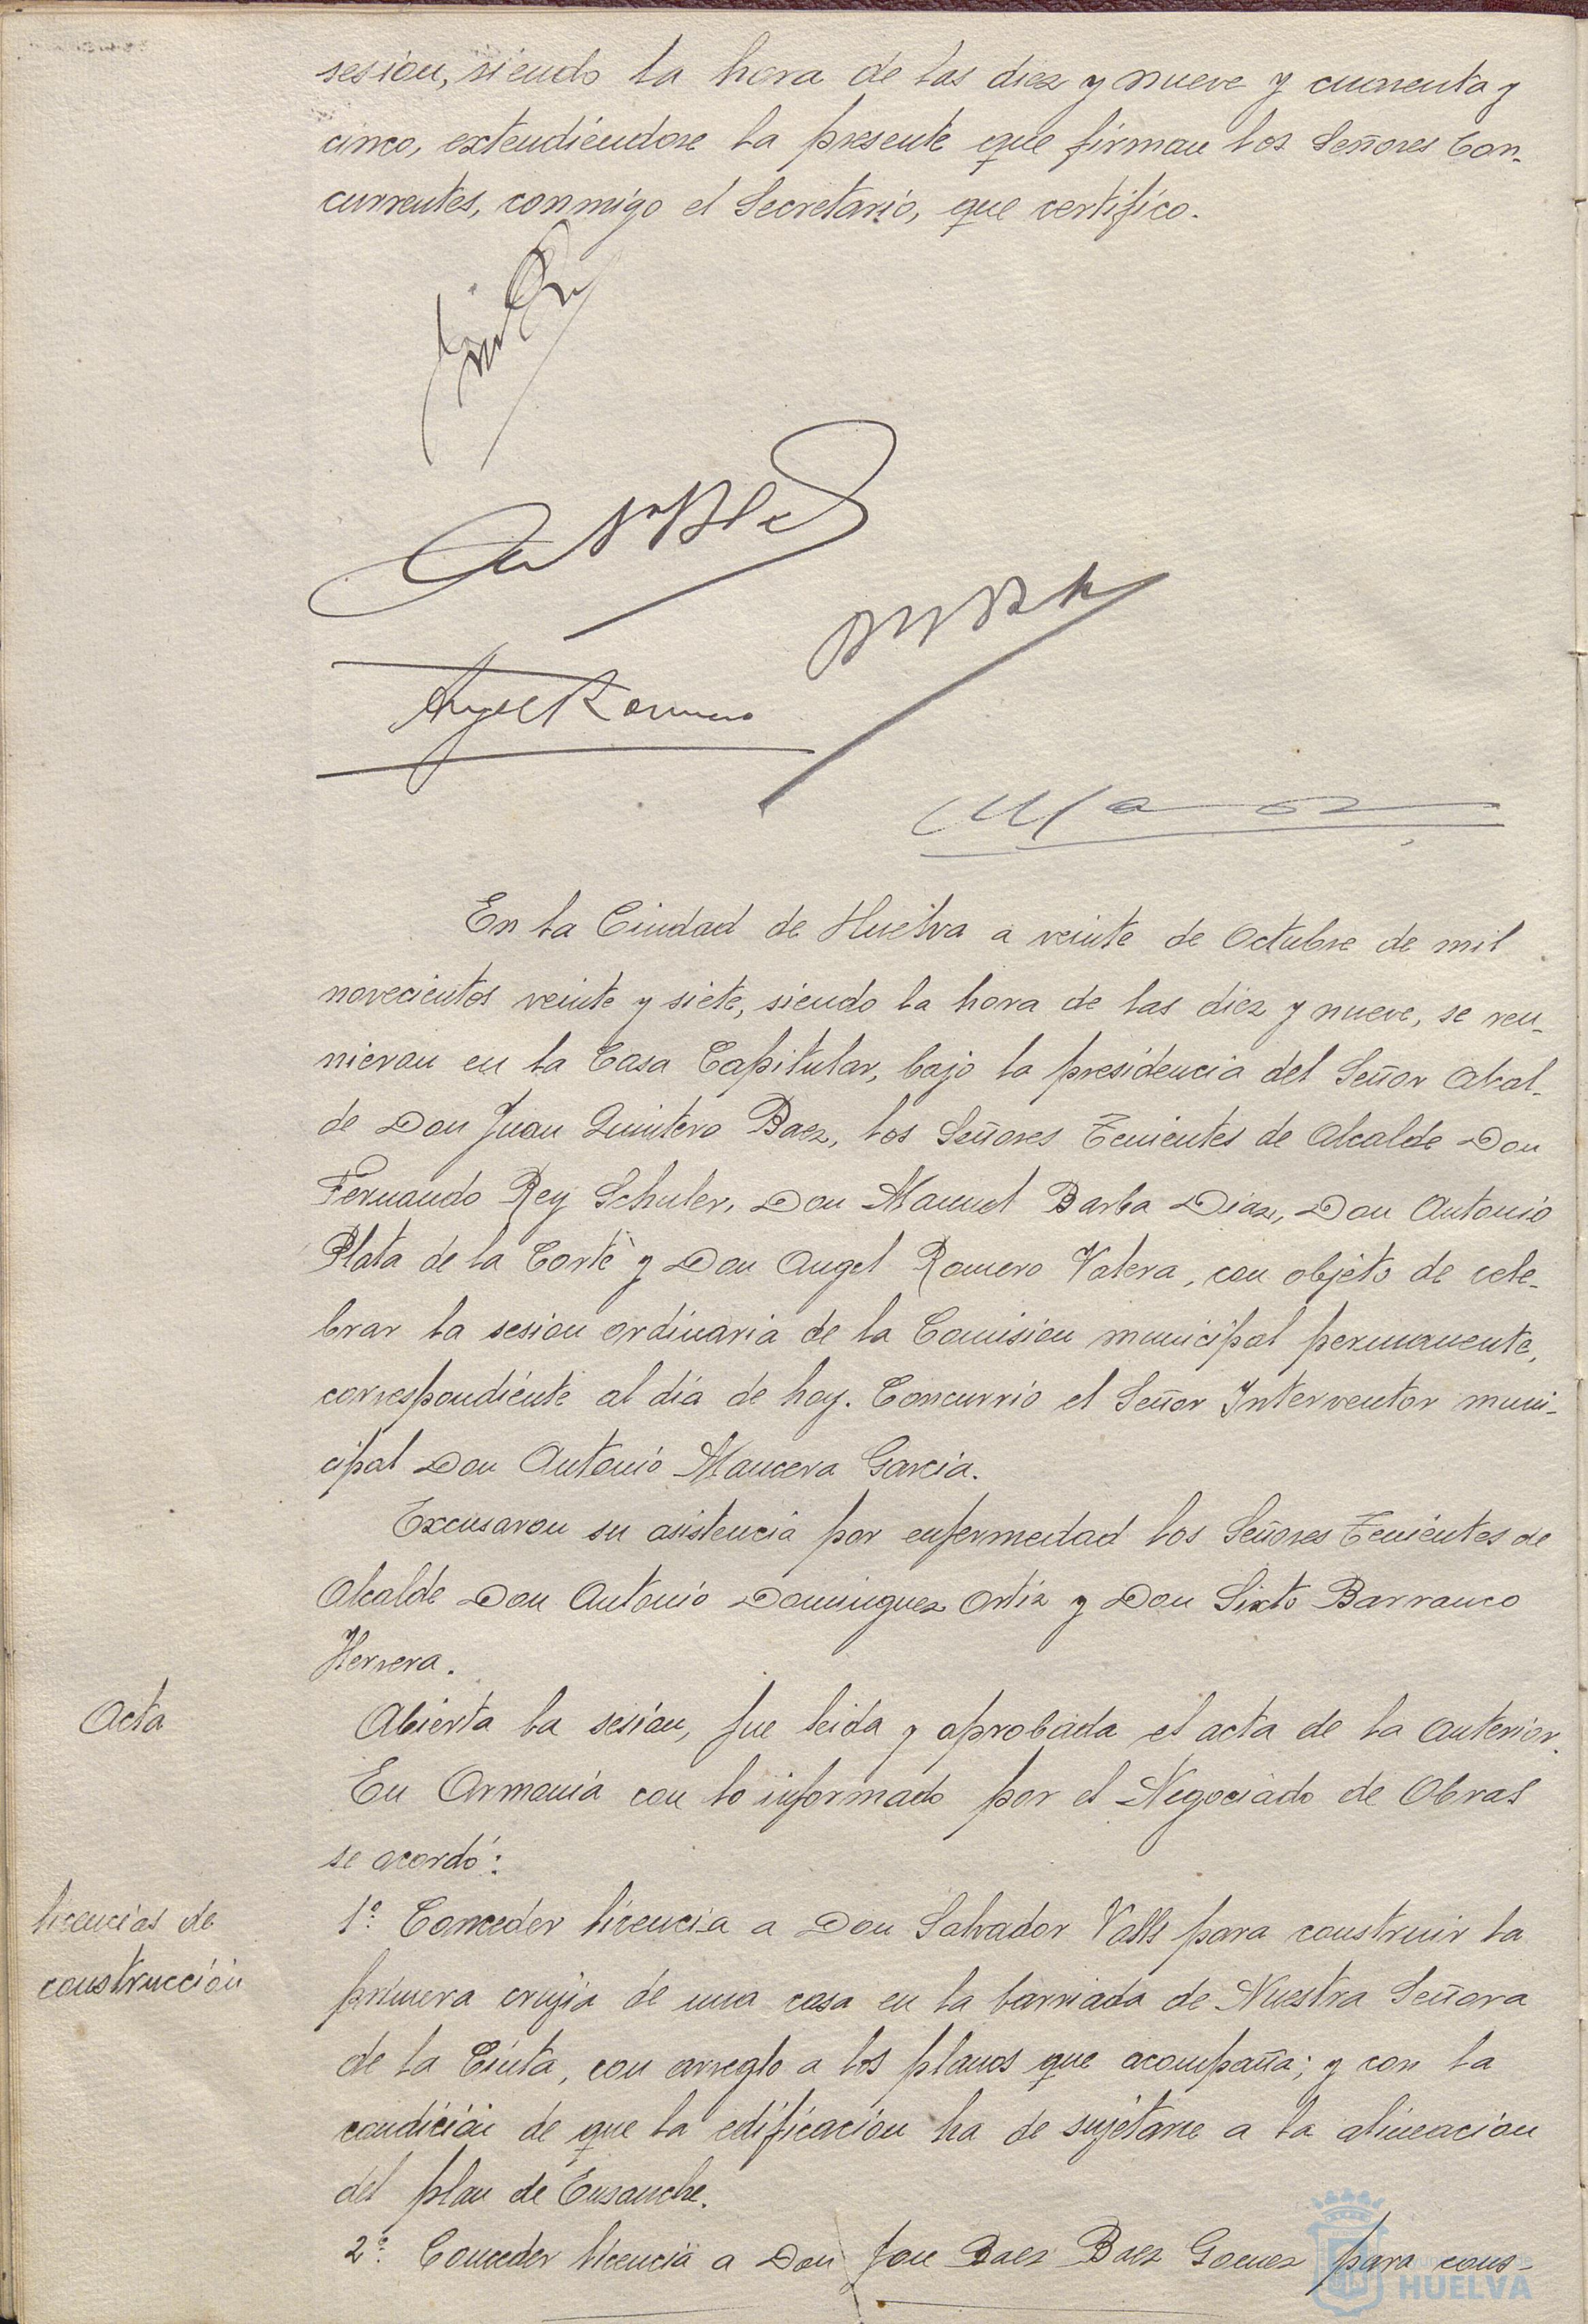 sesion, siendo la hora de las diez y nueve y cuarenta y
cinco, extendiéndose la presente que firman los Señores Con-
currentes, conmigo el Secretario, que certifico.
Angel Romero
En la Ciudad de Huelva a veinte de Octubre de mil
novecientos veinte y siete, siendo la hora de las diez y nueve, se reu-
nieron en la Casa Capitular, bajo la presidencia del Señor Alcal-
de Don Juan Quintero Baez, los Señores Tenientes de Alcalde Don
Fernando Rey Schuler, Don Manuel Barba Diaz, Don Antonio
Plata de la Corte y Don Angel Romero Valera, con objeto de cele-
brar la sesion ordinaria de la Comision municipal permanente,
correspondiente al dia de hoy. Concurrio el Señor Interventor muni-
cipal Don Antonio Mancera Garcia.
Excusaron su asistencia por enfermedad los Señores Tenientes de
Alcalde Don Antonio Dominguez Ortiz y Don Sixto Barranco
Herrera.
Acta
Abierta la sesion, fue leida y aprobada el acta de la anterior.
En Armonia con lo informado por el Negociado de Obras
se acordó:
licencias de
construcción
1º. Conceder licencia a Don Salvador Valls para construir la
primera crujia de una casa en la barriada de Nuestra Señora
de la Cinta, con arreglo a los planos que acompaña; y con la
condición de que la edificacion ha de sujetarse a la alineacion
del plan de Ensanche.
2º. Conceder licencia a Don Jose Baez Baez Gomez para cons-
HUELVA